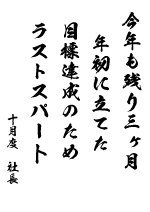 今年も残り三ヶ月
年初に立てた
目標達成のため
ラストスパート
十月度 社長